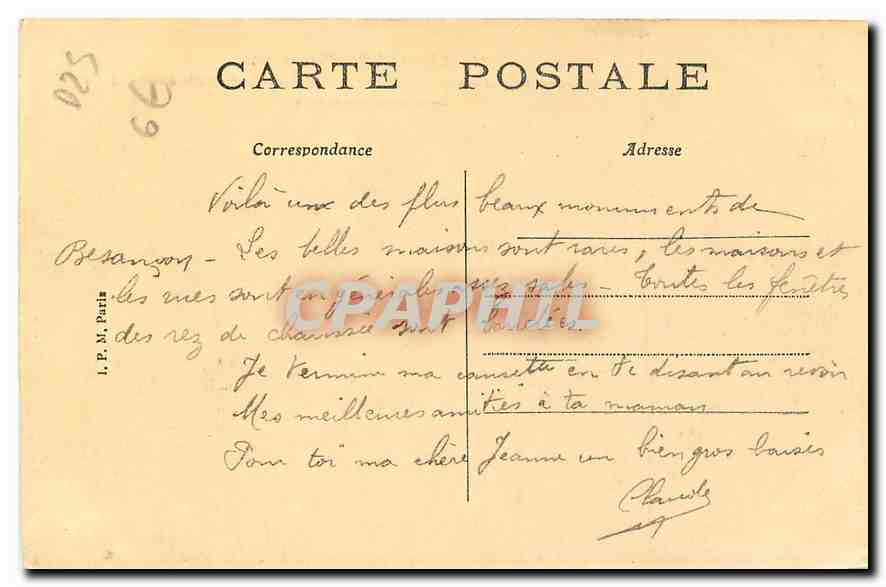 D25
6E
CARTE POSTALE
Correspondance
Adresse
Voilà un des plus beaux monuments de
Besançon - Les belles maisons sont rares, les maisons et
les rues sont en général sales - Toutes les fenêtres
des rez de chaussée sont
Je termine ma causette en te disant au revoir
Mes meilleures amitiés à ta maman
Pour toi ma chère Jeanne un bien gros baiser
Claude
I. P. M. Paris
CPAPHIL